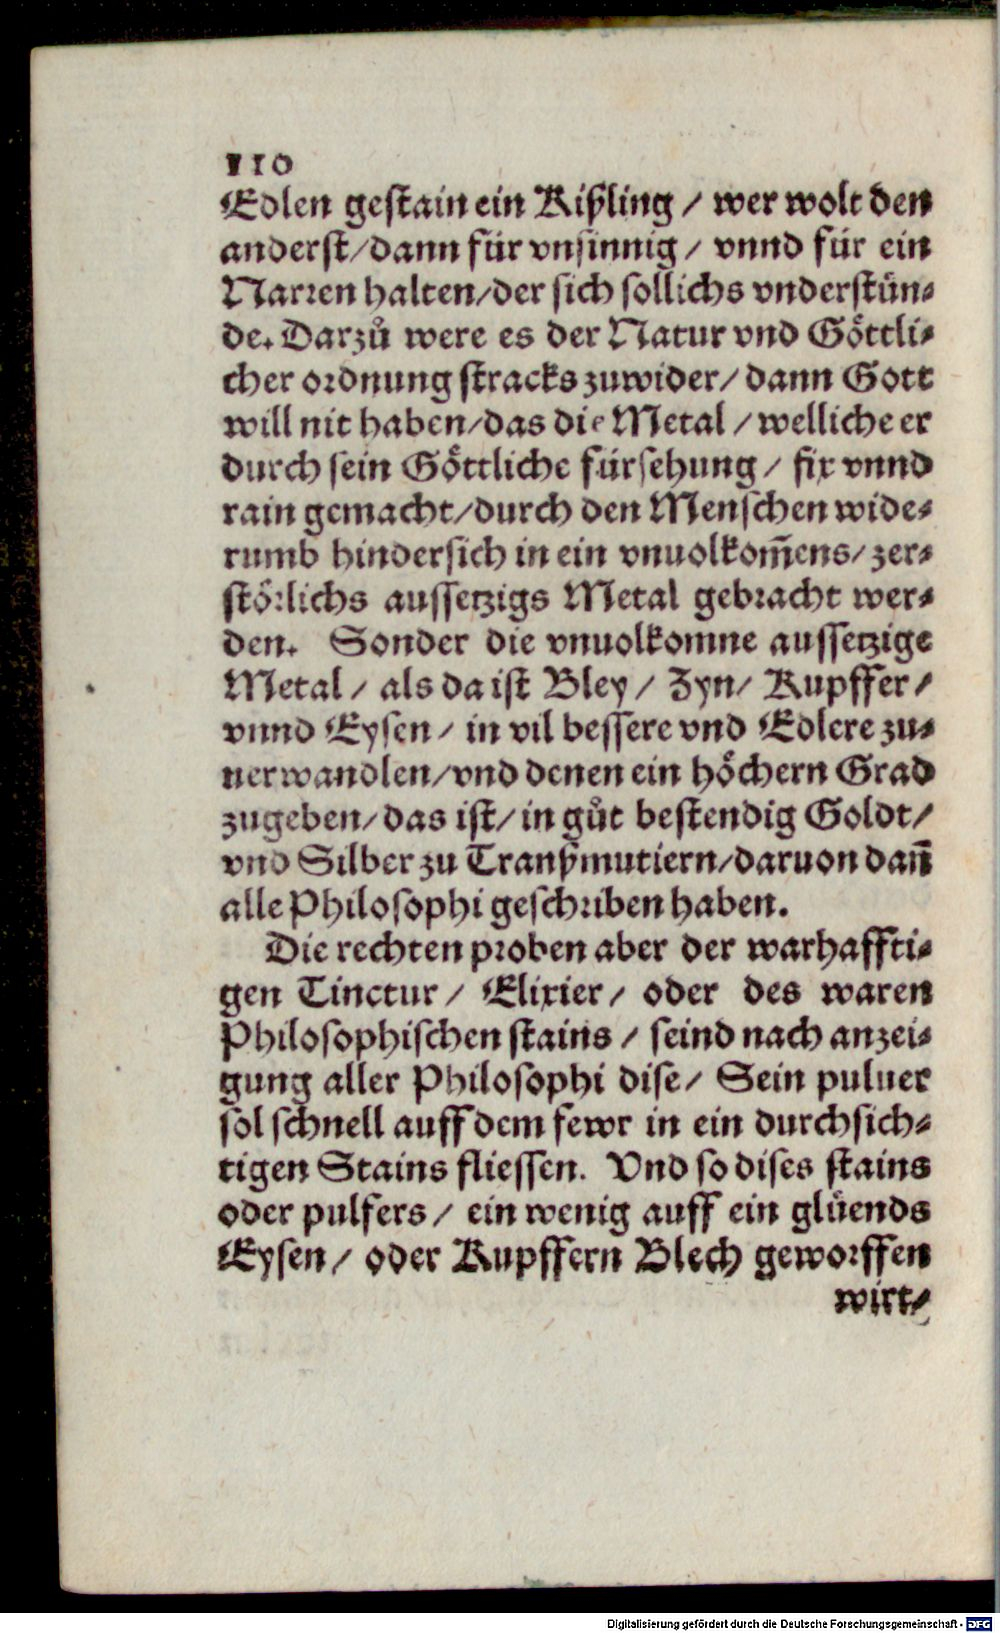 110
Edlen gestain ein Kißling / wer wolt den
anderst/dann für vnsinnig / vnnd für ein
Narren halten/der sich sollichs vnderstün-
de. Darzů were es der Natur vnd Göttli-
cher ordnung stracks zuwider/ dann Gott
will nit haben/das die Metal / welliche er
durch sein Göttliche fürsehung / fix vnnd
rain gemacht/durch den Menschen wide-
rumb hindersich in ein vnuolkom̃ens/ zer-
störlichs aussetzigs Metal gebracht wer-
den. Sonder die vnuolkomne aussetzige
Metal / als da ist Bley / Zyn/ Kupffer /
vnnd Eysen / in vil bessere vnd Edlere zu-
uerwandlen/vnd denen ein höchern Grad
zugeben/das ist/ in gůt bestendig Goldt/
vnd Silber zu Tranßmutiern/daruon dañ
alle Philosophi geschriben haben.
Die rechten proben aber der warhaffti-
gen Tinctur / Elixier / oder des waren
Philosophischen stains / seind nach anzei-
gung aller Philosophi dise/ Sein puluer
sol schnell auff dem fewr in ein durchsich-
tigen Stains fliessen. Vnd so dises stains
oder pulfers / ein wenig auff ein glüends
Eysen / oder Kupffern Blech geworffen
wirt/
Digitalisierung gefördert durch die Deutsche Forschungsgemeinschaft - DFG